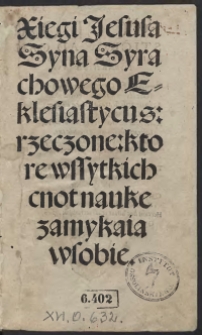 Xiegi Jesusa
Syna Syra
chowego E⸗
klesiastycus:
rzeczone: kto
re wssytkich
cnot nauke
zamykaia
wsobie.
6.402
XVI.O.632.